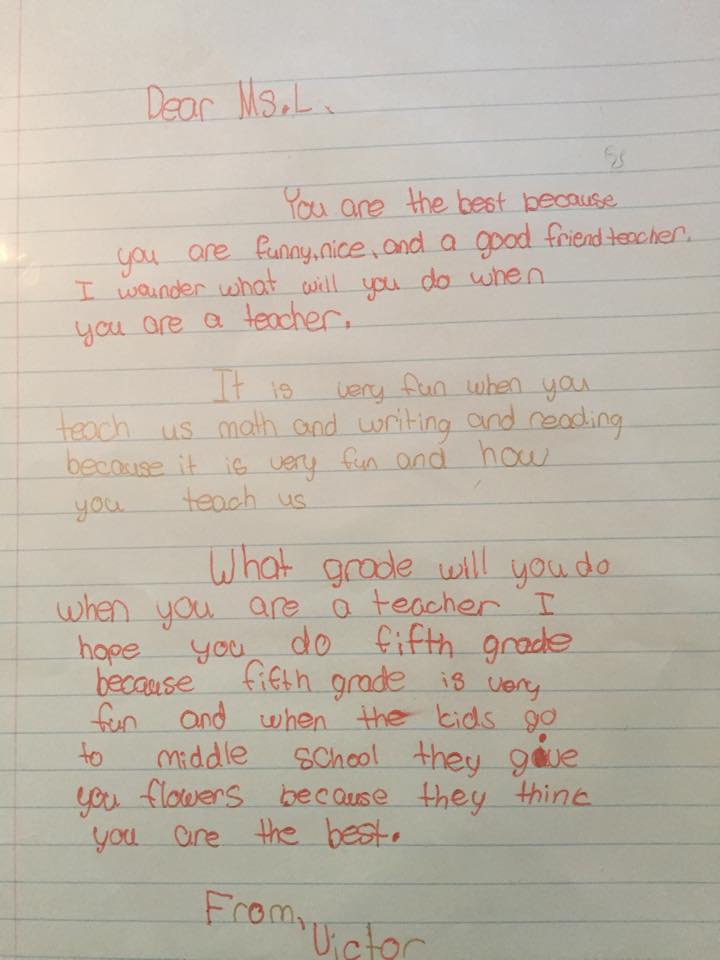 Dear Ms.L.
You are the best because
you are funny,nice,and a good friend teacher.
I wounder what will you do when
you are a teacher.
It is very fun when you
teach us math and writing and reading
because it is very fun and how
you teach us
What grade will you do
when you are a teacher I
hope you do fifth grade
because fifth grade is very
fun and when the kids go
to middle school they give
you flowers because they thinc
you are the best.
From,
Victor